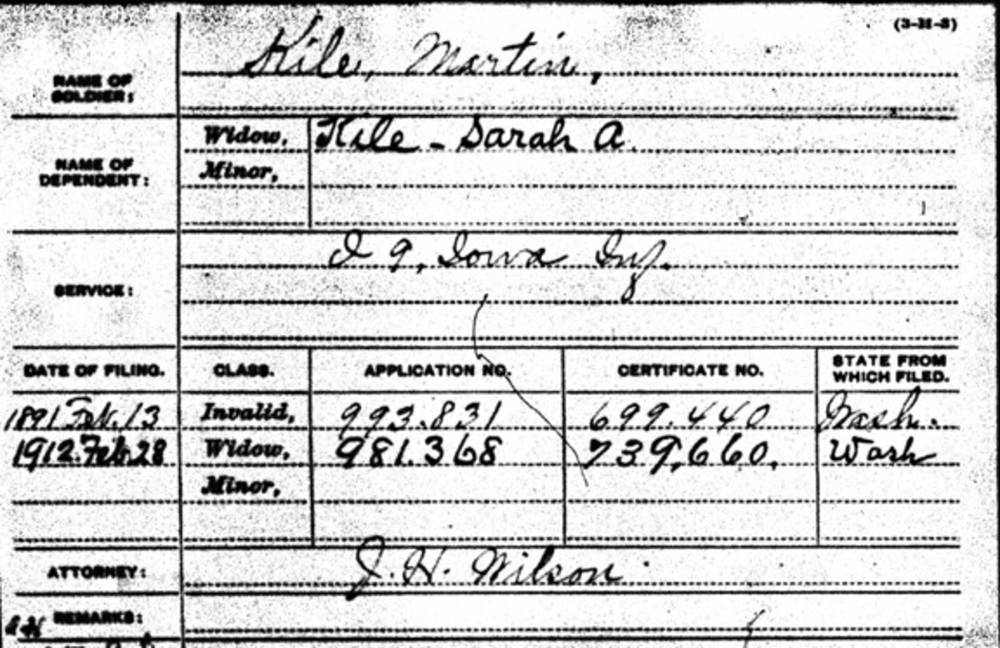 (3-31-3)
Kile, Martin,
NAME OF
SOLDIER:
Widow, Kile - Sarah A.
NAME OF
DEPENDENT:
Minor,
I 9, Iowa Inf.
SERVICE:
DATE OF FILING. CLASS. APPLICATION NO. CERTIFICATE NO. STATE FROM
WHICH FILED.
1891 Feb. 13 Invalid, 993.831 699.440 Wash.
1912 Feb 28 Widow, 981.368 739,660. Wash
Minor,
ATTORNEY: J. H. Wilson
REMARKS: